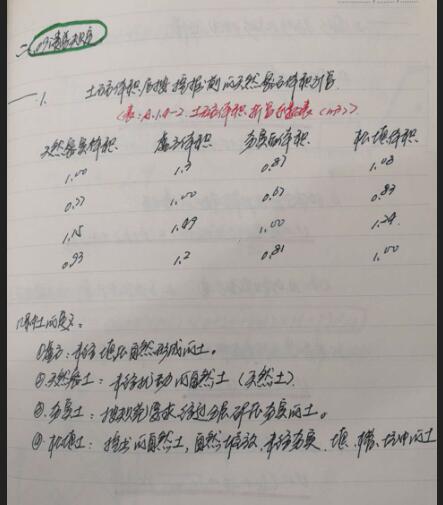 二、
一、1. 土方体积应按挖掘前的天然密实体积计算.
(表:A.1.4-2. 土石方体积折算系数表 (m³)).
天然密实体积. 虚方体积. 夯实后体积. 松填体积.
1.00 1.3 0.87 1.08
0.77 1.00 0.67 0.83
1.15 1.49 1.00 1.24
0.93 1.2 0.81 1.00
的定义:
①虚方:未经填压自然形成的土。
②天然密土:未经扰动的自然土(天然土).
③夯实土:按规范要求经过分层碾压夯实的土。
④松填土:挖出的自然土,自然堆放,未经夯实,填、槽、坑中的土